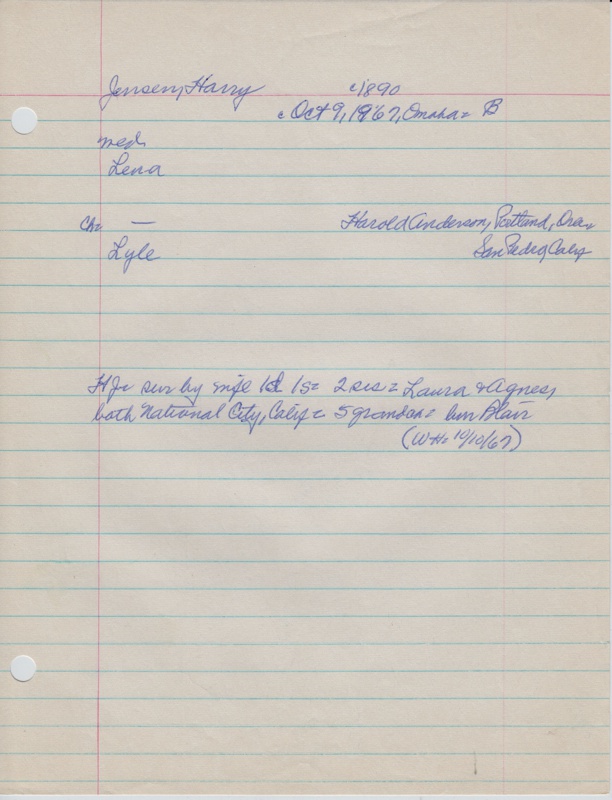 Jensen, Harry c1890
c Oct 9, 1967, Omaha = B
med.
Lena
Ch: — Harold Anderson, Portland, Ore.
Lyle San Pedro, Calif
HJ = sur by wife 1d 1s = 2 sis = Laura & Agnes,
both National City, Calif = 5 grandch = bur Blair
(WH: 10/10/67)